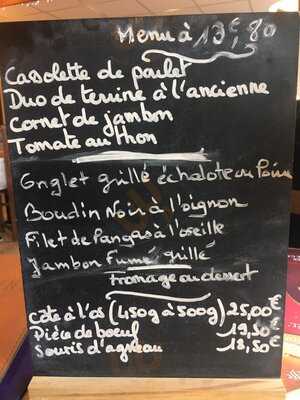 Menu à 13€,80
Cassolette de poulet
Duo de terrine à l'ancienne
Cornet de jambon
Tomate au thon
Onglet grillé échalote ou Poivre
Boudin Noir à l'oignon
Filet de Pangas à l'oseille
Jambon Fumé grillé
Fromage ou dessert
Côte à l'os (450g à 500g) 25,00€
Pièce de boeuf 19,50€
Souris d'agneau 18,50€